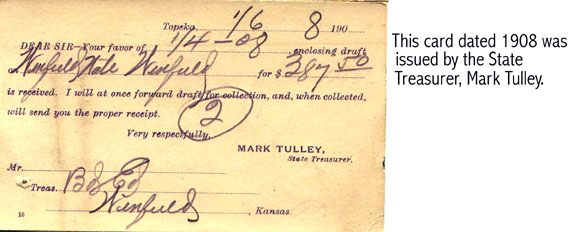 Topeka, 1/6 8 190
DEAR SIR—Your favor of 1/4-08, enclosing draft
on Winfield State Winfield for $ 387 50
is received. I will at once forward draft for collection, and, when collected,
will send you the proper receipt.
2
Very respectfully,
MARK TULLEY,
State Treasurer.
Mr.
Treas. Bd Ed
Winfield, Kansas.
16
This card dated 1908 was
issued by the State
Treasurer, Mark Tulley.